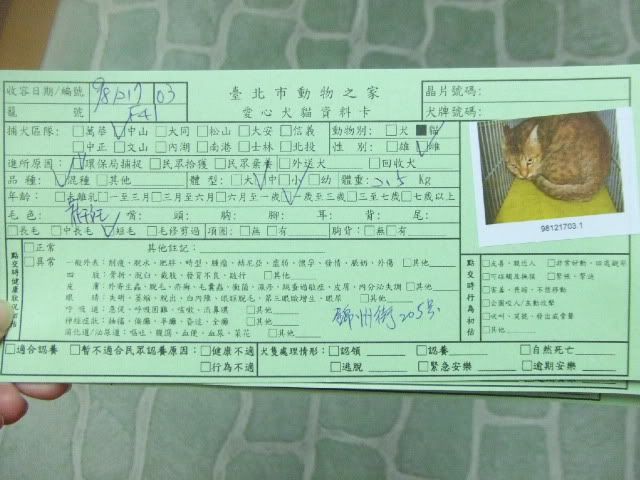 收容日期/編號 98.12.17 03 臺北市動物之家 晶片號碼:
籠 號 愛心犬貓資料卡 犬牌號碼:
捕犬區隊: □萬華 □中山 □大同 □松山 □大安 □信義 動物別: □犬 ■貓
□中正 □文山 □內湖 □南港 □士林 □北投 性別: □雄 □雌
進所原因: □環保局捕捉 □民眾拾獲 □民眾棄養 □外送犬 □回收犬
品種: □混種 □其他 體型: □大 □中 □小 □幼 體重: 3.5 Kg
年齡: □未離乳 □一至三月 □三月至六月 □六月至一歲 □一歲至三歲 □三至七歲 □七歲以上
毛色: 嘴: 頭: 胸: 腳: 耳: 背: 尾:
□長毛 □中長毛 □短毛 □毛修剪過 項圈: □無 □有 胸背: □無 □有
98121703.1
點交時健康狀況初估
□正常 其他註記:
□異常 一般外表: 削瘦, 脫水, 肥胖, 畸型, 腫瘤, 赫尼亞, 虛弱, 懷孕, 發情, 脹奶, 外傷 □其他
四肢: 骨折, 脫臼, 截肢, 發育不良, 跛行 □其他
皮膚: 外寄生蟲, 脫毛, 疥癬, 毛囊蟲, 黴菌, 濕疹, 跳蚤過敏症, 皮屑, 內分泌失調 □其他
眼睛: 失明, 萎縮, 脫出, 白內障, 眼球脫毛, 第三眼瞼增生, 眼屎 □其他
呼吸道: 急促, 呼吸困難, 咳嗽, 流鼻膿 □其他
神經症狀: 抽搐, 偏癱, 半癱, 昏迷, 全癱 □其他
消化道/泌尿道: 嘔吐, 腹瀉, 血便, 血尿, 菜花 □其他
錦州街205号
點交時行為初估
□友善, 親近人 □非常好動, 四處觀望
□可碰觸及撫摸 □緊張, 緊迫
□害羞, 畏縮, 不想移動
□企圖咬人/主動攻擊
□吠叫, 哭號, 發出威脅聲
□其他
□適合認養 □暫不適合民眾認養原因: □健康不適 犬隻處理情形: □認領 □認養 □自然死亡
□行為不適 □逃脫 □緊急安樂 □逾期安樂